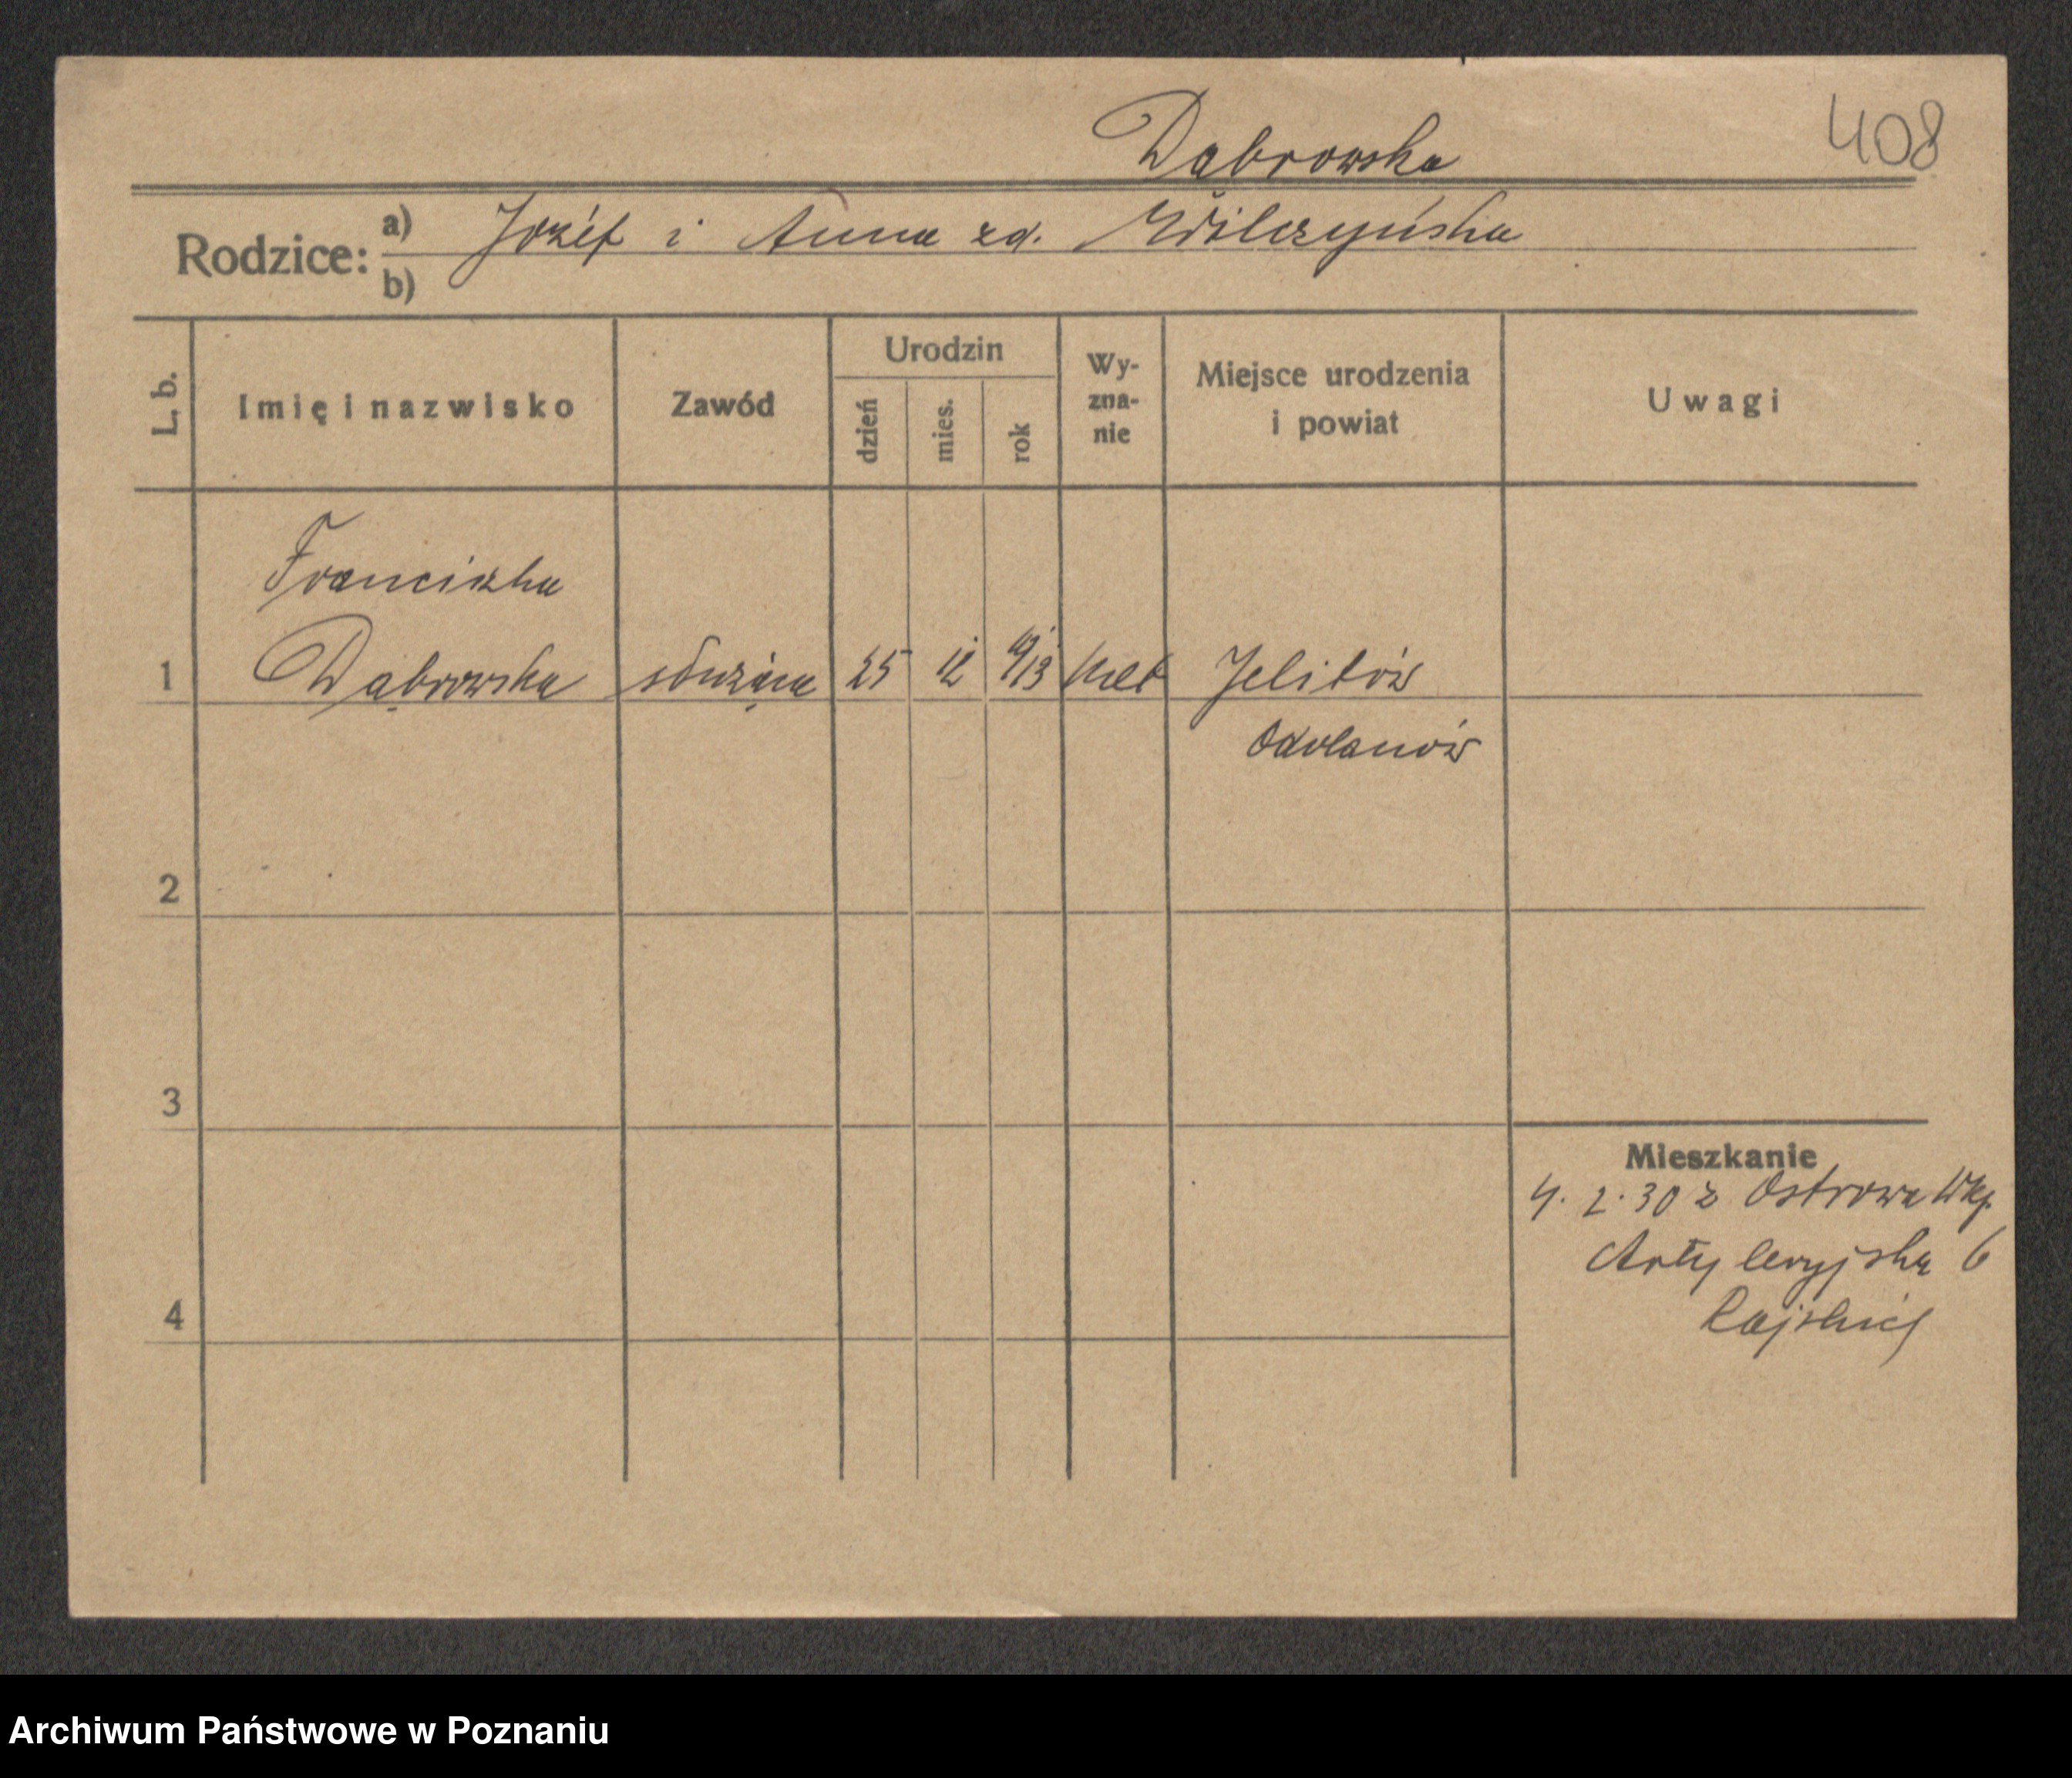 Dąbrowska
408
Rodzice: a) Józef i Anna zd. Wilczyńska
b)
L. b.
Imię i nazwisko
Zawód
Urodzin
dzień
mies.
rok
Wy-
zna-
nie
Miejsce urodzenia
i powiat
Uwagi
Franciszka
1 Dąbrowska służąca 25 12 1913 Jelitów
Odolanów
2
3
4
Mieszkanie
4. 2. 30 z Ostrowa Wkp.
Artyleryjska 6
Archiwum Państwowe w Poznaniu